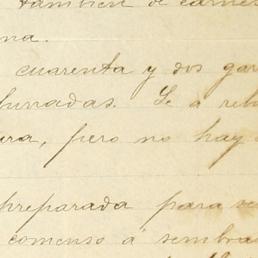 tambien de carnes
na.
cuarenta y dos gar
bunadas. Se a reb
ura, pero no hay
preparada para se
comenso a sembra